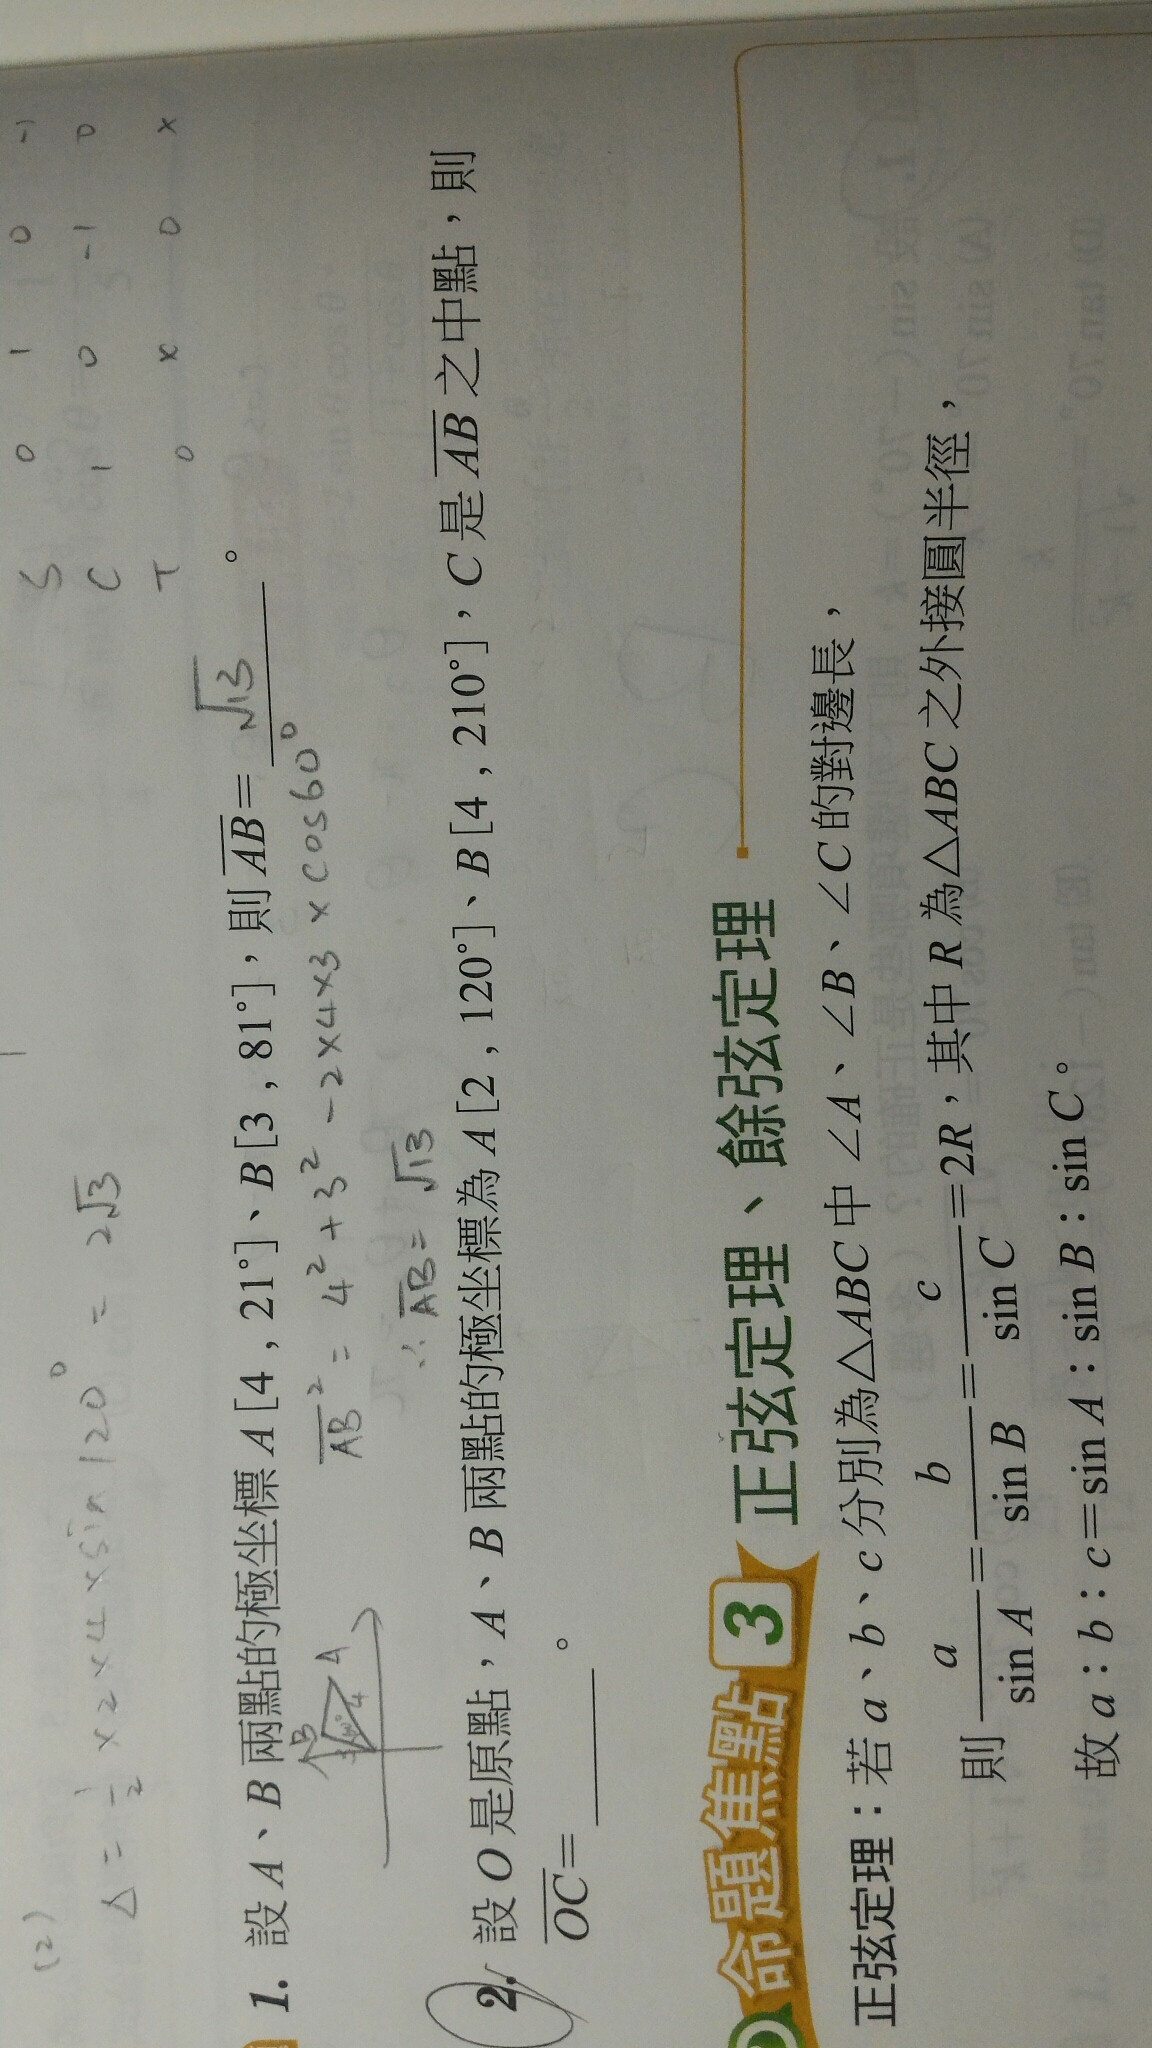 S 0 1 0 -1
C 1 0 -1 0
T 0 x 0 x
(2)
△ = 1/2 × 2 × 4 × sin 120° = 2√3
1. 設 A、B 兩點的極坐標 A [4 , 21°]、B [3 , 81°],則 AB = √13 。
AB² = 4² + 3² - 2×4×3 × cos60°
∴ AB = √13
B
A
4
2. 設 O 是原點,A、B 兩點的極坐標為 A [2 , 120°]、B [4 , 210°],C 是 AB 之中點,則
OC = ______ 。
命題焦點 3 正弦定理、餘弦定理
正弦定理:若 a、b、c 分別為△ABC 中 ∠A、∠B、∠C 的對邊長,
則 a/sin A = b/sin B = c/sin C = 2R,其中 R 為△ABC 之外接圓半徑,
故 a:b:c=sin A:sin B:sin C。